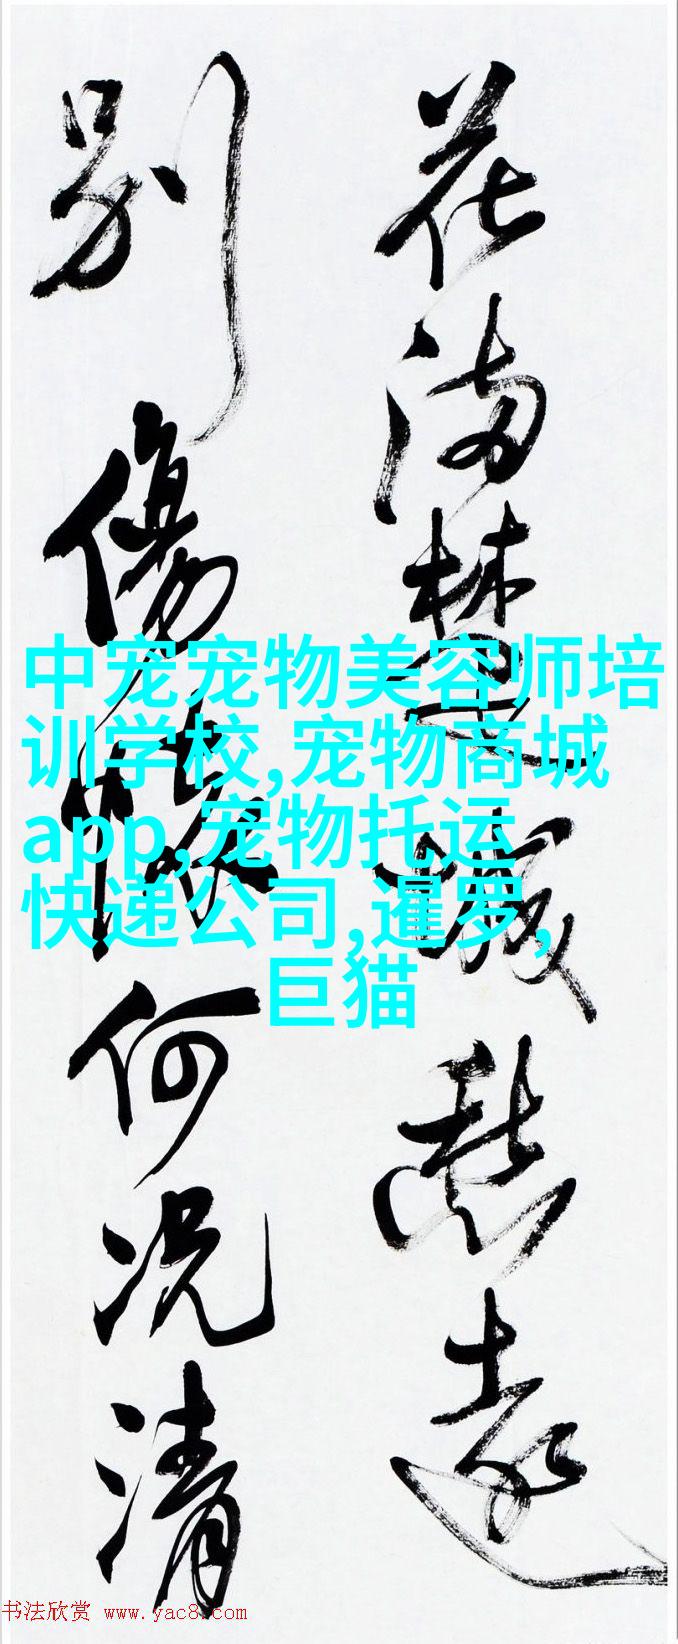 花满楚城愁远
别伤怅何况清
中宠宠物美容师培
训学校,宠物商城
app,宠物托运
快递公司,暹罗,
巨猫
书法欣赏 www.yac8.com